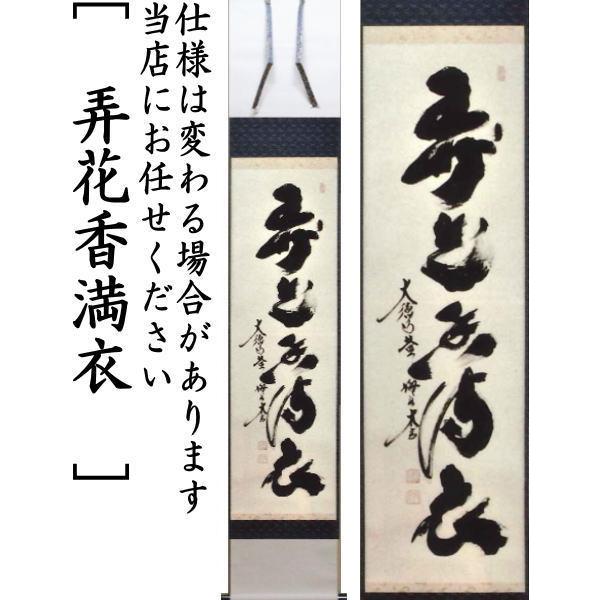 仕様は変わる場合があります
当店にお任せください
［弄花香満衣］
弄花香満衣
弄花香満衣